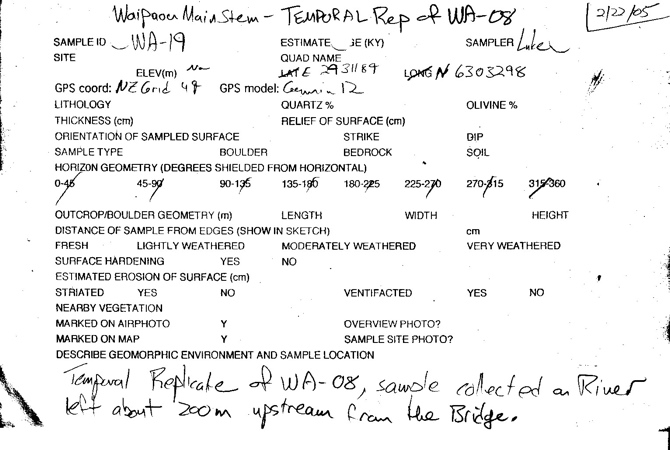 Waipaoa Main Stem - TEMPORAL Rep of WA-08
2/22/05
SAMPLE ID WA-19 ESTIMATE GE (KY) SAMPLER Luker
SITE QUAD NAME
ELEV(m) LAT E 2931184 LONG N 6303298
GPS coord: NZ Grid 49 GPS model: Garmin 12
LITHOLOGY QUARTZ % OLIVINE %
THICKNESS (cm) RELIEF OF SURFACE (cm)
ORIENTATION OF SAMPLED SURFACE STRIKE DIP
SAMPLE TYPE BOULDER BEDROCK SOIL
HORIZON GEOMETRY (DEGREES SHIELDED FROM HORIZONTAL)
0-45 45-90 90-135 135-180 180-225 225-270 270-315 315-360
OUTCROP/BOULDER GEOMETRY (m) LENGTH WIDTH HEIGHT
DISTANCE OF SAMPLE FROM EDGES (SHOW IN SKETCH) cm
FRESH LIGHTLY WEATHERED MODERATELY WEATHERED VERY WEATHERED
SURFACE HARDENING YES NO
ESTIMATED EROSION OF SURFACE (cm)
STRIATED YES NO VENTIFACTED YES NO
NEARBY VEGETATION
MARKED ON AIRPHOTO Y OVERVIEW PHOTO?
MARKED ON MAP Y SAMPLE SITE PHOTO?
DESCRIBE GEOMORPHIC ENVIRONMENT AND SAMPLE LOCATION
Temporal Replicate of WA-08, sample collected on River
left about 200m upstream from the Bridge.